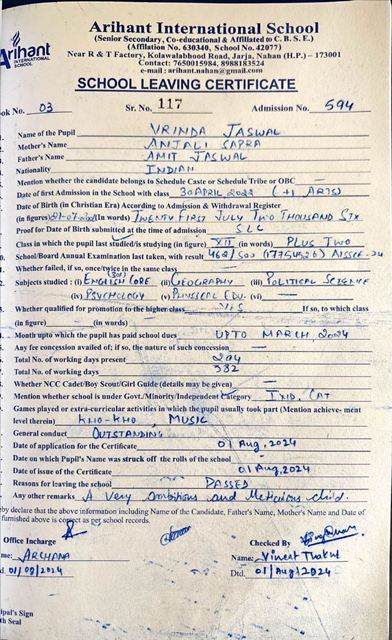 Arihant International School
(Senior Secondary, Co-educational & Affiliated to C. B. S. E.)
(Affiliation No. 630340, School No. 42077)
Near R & T Factory, Kolawalabhood Road, Jarja, Nahan (H.P.) – 173001
Contact: 7650015984, 8988183524
e-mail : arihant.nahan@gmail.com
Arihant
INTERNATIONAL
SCHOOL
SCHOOL LEAVING CERTIFICATE
ok No. 03 Sr. No. 117 Admission No. 594
Name of the Pupil VRINDA JASWAL
Mother's Name ANJALI SAPRA
Father's Name AMIT JASWAL
Nationality INDIAN
Mention whether the candidate belongs to Schedule Caste or Schedule Tribe or OBC —
Date of first Admission in the School with class 30 APRIL 2022 (+1 ARTS)
Date of Birth (in Christian Era) According to Admission & Withdrawal Register
(in figures) 21-07-2006 (in words) TWENTY FIRST JULY TWO THOUSAND SIX
Proof for Date of Birth submitted at the time of admission SLC
Class in which the pupil last studied/is studying (in figure) XII (in words) PLUS TWO
School/Board Annual Examination last taken, with result 468/500 (17754526) AISSCE-24
Whether failed, if so, once/twice in the same class —
Subjects studied : (i) ENGLISH CORE (301) (ii) GEOGRAPHY (iii) POLITICAL SCIENCE
(iv) PSYCHOLOGY (v) PHYSICAL EDU. (vi) —
Whether qualified for promotion to the higher class YES If so, to which class
(in figure) — (in words) —
Month upto which the pupil has paid school dues UPTO MARCH 2024
Any fee concession availed of; if so, the nature of such concession —
Total No. of working days present 294
Total No. of working days 332
Whether NCC Cadet/Boy Scout/Girl Guide (details may be given) —
Mention whether school is under Govt./Minority/Independent Category IXID, CAT
Games played or extra-curricular activities in which the pupil usually took part (Mention achieve- ment
level therein) KHO-KHO, MUSIC
General conduct OUTSTANDING
Date of application for the Certificate 01 Aug, 2024
Date on which Pupil's Name was struck off the rolls of the school —
Date of issue of the Certificate 01 Aug, 2024
Reasons for leaving the school PASSED
Any other remarks A very ambitious and Meticulous child.
by declare that the above information including Name of the Candidate, Father's Name, Mother's Name and Date of
furnished above is correct as per school records.
Office Incharge Checked By
me: ARCHANA Name: Vineet Thakur
d. 01/08/2024 Dtd. 01/Aug/2024
ipal's Sign
th Seal